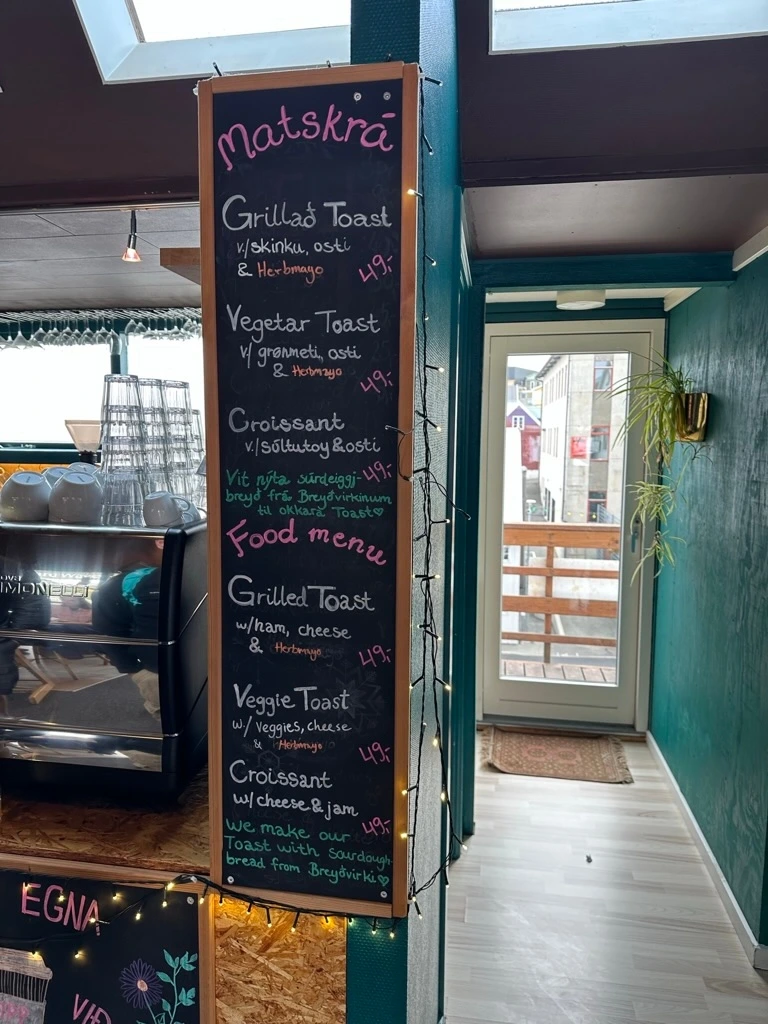 Matskrá
Grillað Toast
v/skinku, osti
& Herbmayo
49,-
Vegetar Toast
v/ grønmeti, osti
& Herbmayo
49,-
Croissant
v/súltutoy & osti
49,-
Vit nýta súrdeiggj-
breyð frá Breyðvirkinum
til okkara Toast♡
Food menu
Grilled Toast
w/ham, cheese
& Herbmayo
49,-
Veggie Toast
w/ veggies, cheese
& Herbmayo
49,-
Croissant
w/ cheese & jam
49,-
We make our
Toast with sourdough
bread from Breyðvirki♡
EGNA